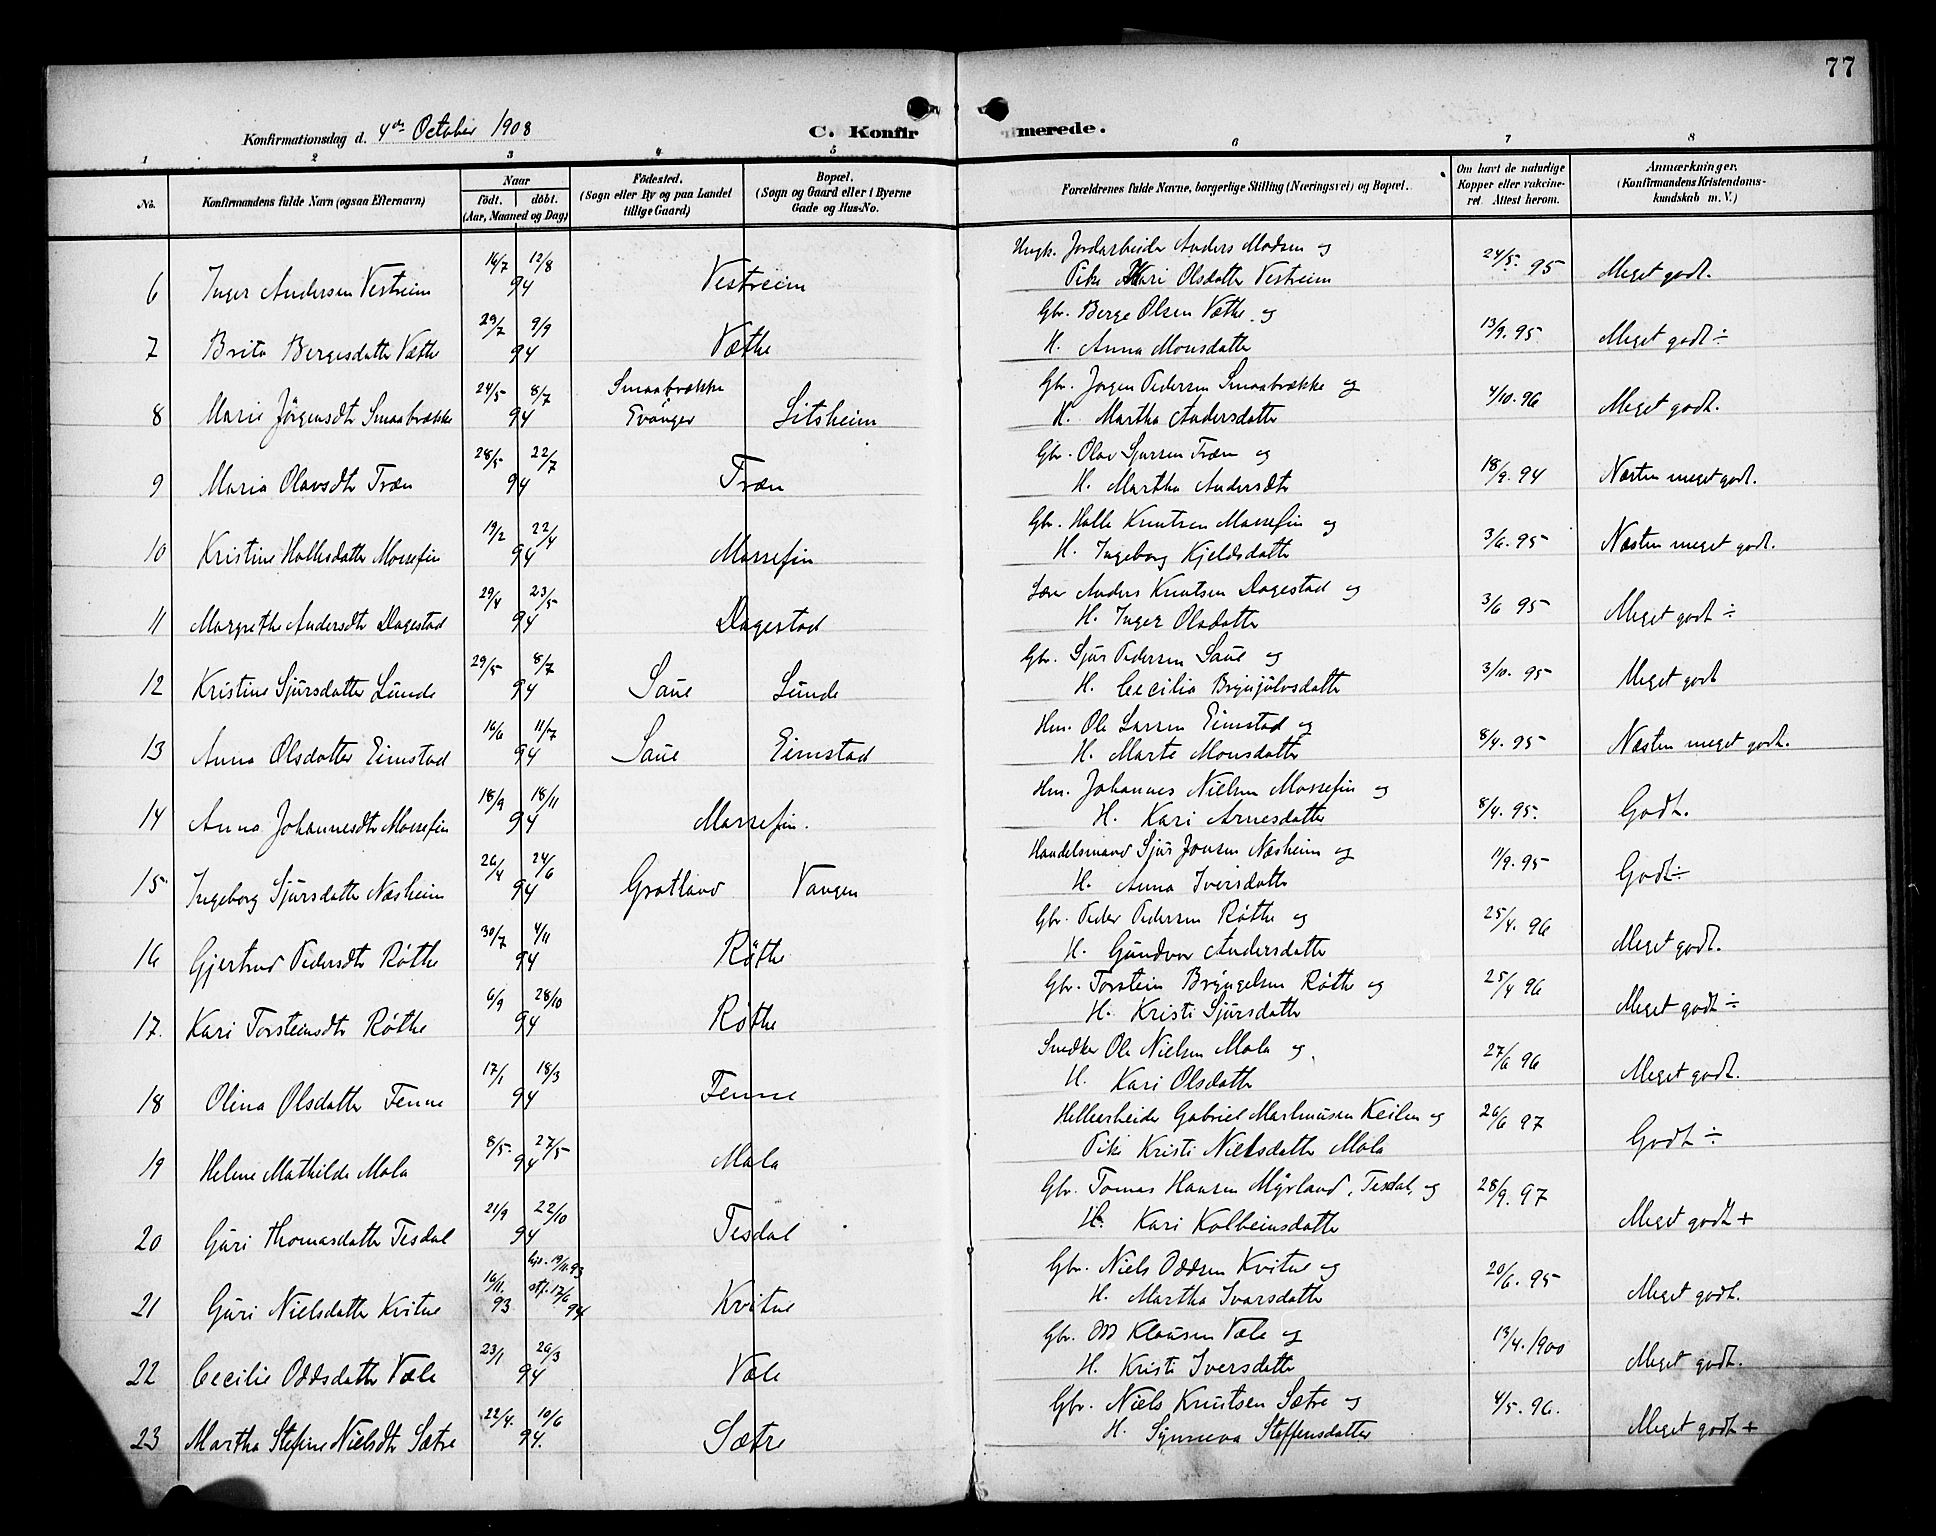 77
Konfirmationsdag d. 4de October 1908
C. Konfirmerede.
1 2 3 4 5 6 7 8
No. Konfirmandens fulde Navn (ogsaa Efternavn) Naar født. døbt. (Aar, Maaned og Dag) Fødested. (Sogn eller By og paa Landet tillige Gaard) Bopæl. (Sogn og Gaard eller i Byerne Gade og Hus-No. Forældrenes fulde Navne, borgerlige Stilling (Næringsvei) og Bopæl. Om havt de naturlige Kopper eller vakcineret. Attest herom. Anmærkninger. (Konfirmandens Kristendomskundskab m. V.)
6 Inger Andersen Vestreim 16/7 12/8 94 Vestreim Ungk. Jordarbeider Anders Madsen og
Pike Kari Olsdatter Vestreim 24/5. 95 Meget godt.
7 Brita Bergesdatter Væthe 29/7 9/9 94 Væthe Gbr. Berge Olsen Væthe og
H. Anna Monsdatter 13/9. 95. Meget godt ÷
8 Marie Jörgensdtr Smaabrække 24/5 8/7 94 Smaabrække Evanger Litsheim Gbr. Jørgen Pedersen Smaabrække og
H. Martha Andersdatter 4/10. 96 Meget godt.
9 Maria Olavsdtr Træn 28/5 22/7 94 Træn Gbr. Olav Sjursen Træn og
H. Martha Andersdtr 18/9. 94 Næsten meget godt.
10 Kristine Hallesdatter Mossefin 19/2 22/4 94 Mossefin Gbr. Halle Knutsen Mossefin og
H. Ingeborg Kjeldsdatter 3/6. 95 Næsten meget godt.
11 Margrethe Andersdtr Dagestad 29/4 23/5 94 Dagestad Anders Knutsen Dagestad og
H. Inger Olsdatter 3/6 95 Meget godt ÷
12 Kristine Sjursdatter Lunde 29/5 8/7 94 Saue Lunde Gbr. Sjur Pedersen Saue og
H. Cecilia Brynjulvsdatter 3/10. 95 Meget godt
13 Anna Olsdatter Eimstad 16/6 11/7 94 Saue Eimstad Hm. Ole Larsen Eimstad og
H. Marte Monsdatter 8/4. 95 Næsten meget godt.
14 Anna Johannesdtr Mossefin 18/9 18/11 94 Mossefin. Hm. Johannes Nielsen Mossefin og
H. Kari Arnesdatter 8/4. 95. Godt.
15 Ingeborg Sjursdatter Næsheim 26/4 24/6 94 Grotland Vangen Handelsmand Sjur Jonsen Næsheim og
H. Anna Iversdatter 11/9. 95 Godt ÷
16 Gjertrud Pedersdtr Röthe 30/7 4/11 94 Röthe Gbr. Peder Pedersen Röthe og
H. Gundvor Andersdatter 25/4. 96 Meget godt.
17. Kari Torsteinsdtr Röthe 6/9 28/10 94 Röthe Gbr. Torstein Bryngelsen Röthe og
H. Kristi Sjursdatter 25/4 96 Meget godt ÷
18 Olina Olsdatter Fenne 17/1 18/3 94 Fenne Snedker Ole Nielsen Mala og
H. Kari Olsdatter 27/6 96 Meget godt.
19 Helene Mathilde Mala 8/5. 27/5 94 Mala Gabriel Markussen Keilen og
Pike Kristi Nielsdatter Mala 26/6 97 Godt ÷
20 Guri Thomasdatter Tesdal 21/9 22/10 94 Tesdal Gbr. Tomas Hansen Myrland, Tesdal, og
H. Kari Kolbeinsdatter 28/9. 97 Meget godt +
21 Guri Nielsdatter Kvitne 16/11. 93. hjd. 19/11.93 stf. 17/6 94 Kvitne Gbr. Niels Oddsen Kvitne og
H. Martha Ivarsdatter 20/6. 95 Meget godt.
22 Cecilie Oddsdatter Væle 23/1 26/3 94 Væle Gbr. Odd Klausen Væle og
H. Kristi Iversdatter 13/4. 1900 Meget godt.
23 Martha Stefine Nielsdtr Sætre 22/4. 10/6 94. Sætre Gbr. Niels Knutsen Sætre og
H. Synneva Steffensdatter 4/5. 96. Meget godt +